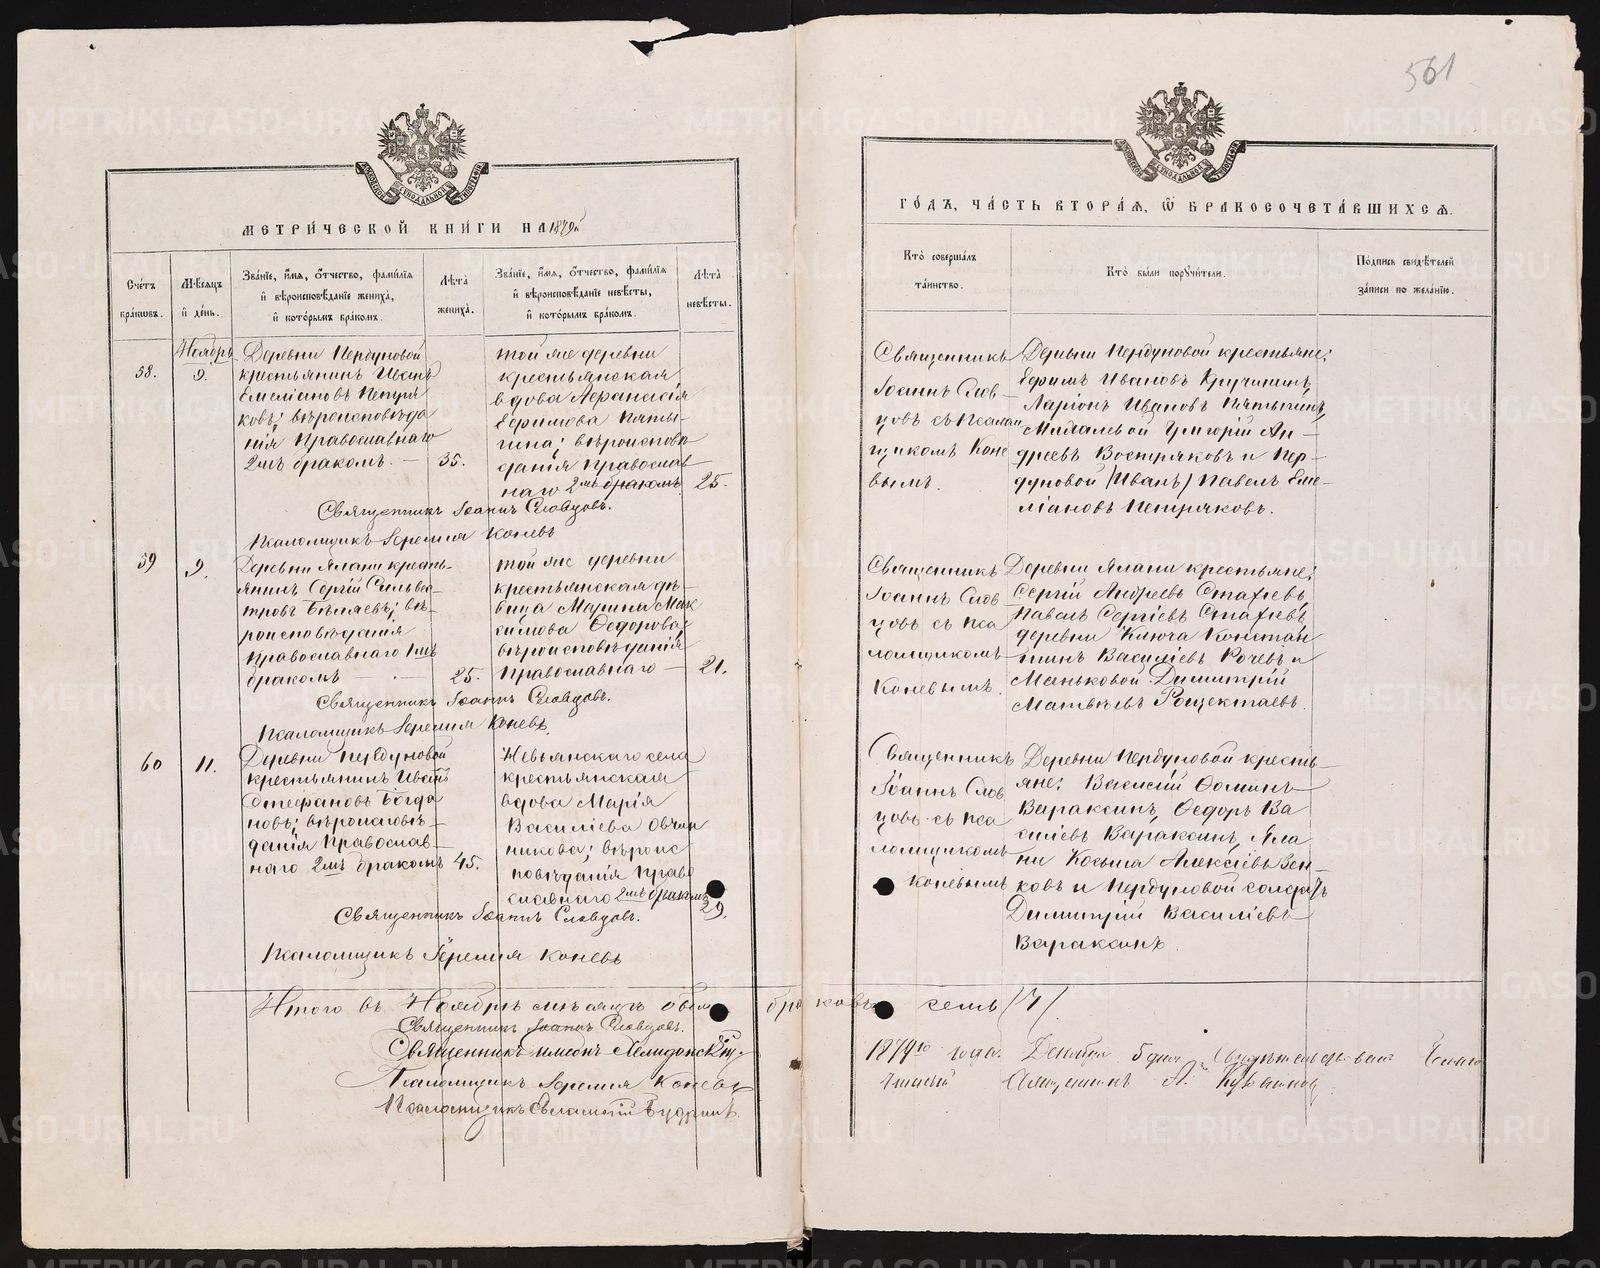 561
МЕТРИ́ЧЕСКОЙ КНИ́ГИ НА 1879й
Сче́тъ бра́кωвъ.
Мѣ́сяцъ и̂ де́нь.
Зва́нїе, и́мя, о́тчество, фами́лїя и̂ вѣроисповѣ́данїе жениха̀, и̂ кото́рымъ бра́комъ.
Лѣ́та жениха̀.
Зва́нїе, и́мя, о́тчество, фами́лїя и̂ вѣроисповѣ́данїе невѣ́сты, и̂ кото́рымъ бра́комъ.
Лѣ́та невѣ́сты.
58.
Ноябрь
9.
Деревни Пердуновой
крестьянинъ Иванъ
Емелїановъ Петря
ковъ; вѣроисповѣда
нія Православнаго
2мъ бракомъ. —
35.
той же деревни
крестьянская
вдова Афанасія
Ефимова Пяты-
гина; вѣроисповѣ
данія Православ
наго 2мъ бракомъ
25.
Священникъ Іоаннъ Словцовъ.
Псаломщикъ Іеремия Коневъ
59
9.
Деревни Ялани кресть-
янинъ Сергій Сильвес-
тровъ Бѣляевъ; вѣ-
роисповѣданія
Православнаго 1мъ
бракомъ — . —
25.
той же деревни
крестьянская дѣ-
вица Марина Мак
симова Ѳедорова;
вѣроисповѣданія
Православнаго —
21.
Священникъ Іоаннъ Словцовъ.
Псаломщикъ Іеремия Коневъ.
60
11.
Деревни Пердуновой
крестьянинъ Иванъ
Стефановъ Богда
новъ; вѣроисповѣ-
данія Православ-
наго 2мъ бракомъ
45.
Невьянскаго села
крестьянская
вдова Марія
Василіева Овчин
никова; вѣроис
повѣданія Право
славнаго 2мъ бракомъ
29.
Священникъ Іоаннъ Словцовъ.
Псаломщикъ Іеремия Коневъ
Итого въ Ноябрѣ мѣсяцѣ
Священникъ Іоаннъ Словцовъ.
Священникъ
Псаломщикъ Іеремия Коневъ
Псаломщикъ
ГО́ДЪ, ЧА́СТЬ ВТОРА́Я, Ѿ БРАКОСОЧЕТА́ВШИХСЯ.
Кто̀ соверша́лъ та́инство.
Кто̀ бы́ли поручи́тели.
По́дпись свидѣ́телей за́писи по жела́нїю.
Священникъ
Іоаннъ Слов-
цовъ съ Псалом
щикомъ Коне
вымъ.
Деревни Пердуновой крестьяне:
Ефимъ Ивановъ Кручининъ,
Ларіонъ Ивановъ Пятыгинъ,
Григорій Ан-
дреевъ Востряковъ и Пер-
дуновой (Иванъ) Павелъ Еме-
ліановъ Петряковъ.
Священникъ
Іоаннъ Слов
цовъ съ Пса
ломщикомъ
Коневымъ.
Деревни Ялани крестьяне:
Сергій Андреевъ Стахіевъ,
Павелъ Сергіевъ Стахіевъ,
деревни Ключа Констан
тинъ Василіевъ Рочевъ и
Маньковой Димитрій
Матвѣевъ Рощектаевъ.
Священникъ
Іоаннъ Слов
цовъ съ Пса
ломщикомъ
Коневымъ
Деревни Пердуновой кресть-
яне: Василій Ѳоминъ
Вараксинъ, Ѳедоръ Ва
силіевъ Вараксинъ, Яла
ни Косьма Алексіевъ Зен-
ковъ и Пердуновой солдатъ
Димитрій Василіевъ
Вараксинъ.
браковъ семь (7).
1879го года. Декабря 5 дня
Священникъ А.
METRIKI.GASO-URAL.RU